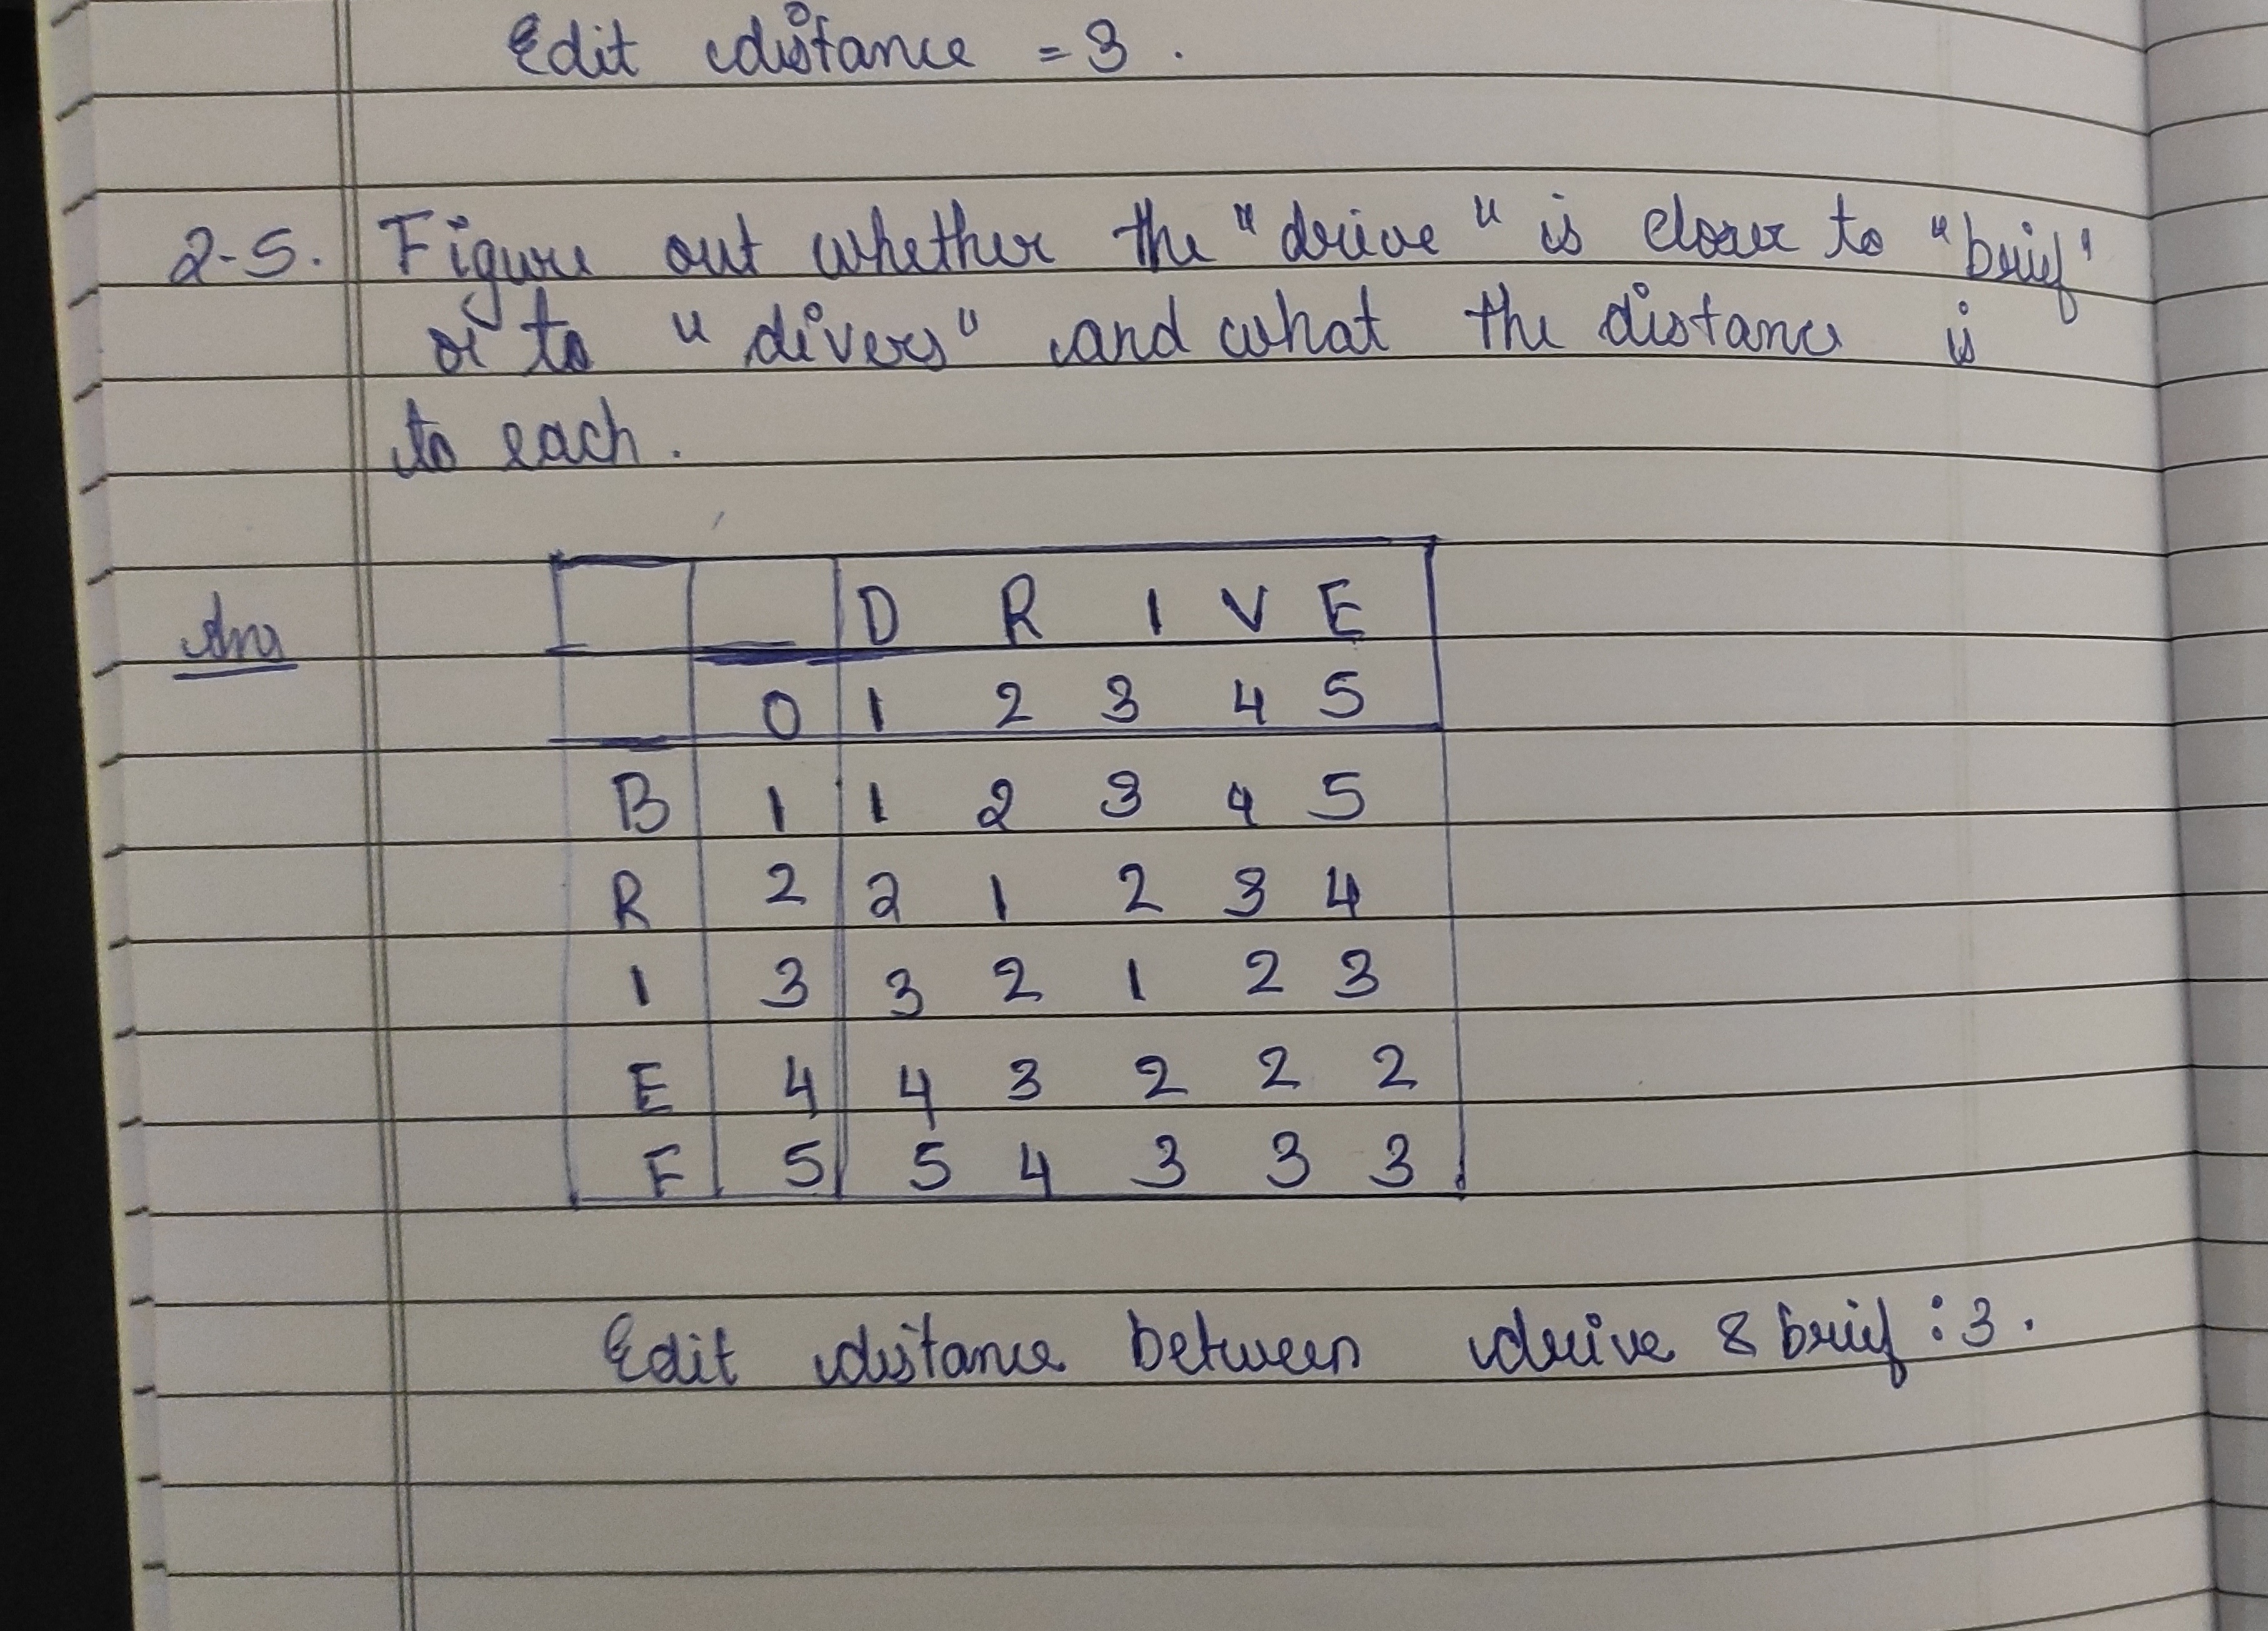 Edit distance = 3.
2-5. Figure out whether the "drive" is closer to "brief"
or to "divers" and what the distance is
to each.
Ans
_ D R I V E
0 1 2 3 4 5
B 1 1 2 3 4 5
R 2 2 1 2 3 4
I 3 3 2 1 2 3
E 4 4 3 2 2 2
F 5 5 4 3 3 3
Edit distance between drive & brief : 3.